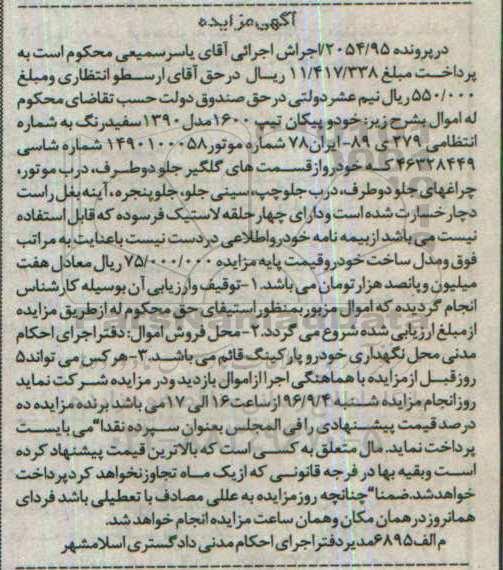 آگهی مزایده
در پرونده ۲۰۵۴/۹۵/اجراش اجرائی آقای یاسر سمیعی محکوم است به
پرداخت مبلغ ۱۱/۴۱۷/۳۳۸ ریال در حق آقای ارسطو انتظاری و مبلغ
۵۵۰/۰۰۰ ریال نیم عشر دولتی در حق صندوق دولت حسب تقاضای محکوم
له اموال بشرح زیر: خودرو پیکان تیپ ۱۶۰۰ مدل ۱۳۹۰ سفید رنگ به شماره
انتظامی ۳۷۹ ی ۸۹- ایران ۷۸ شماره موتور ۱۴۹۰۱۰۰۰۵۸ شماره شاسی
۴۶۳۲۸۴۴۹ که خودرو از قسمت های گلگیر جلو دو طرف، درب موتور،
چراغهای جلو دو طرف، درب جلو چپ، سینی جلو، جلو پنجره، آینه بغل راست
دچار خسارت شده است و دارای چهار حلقه لاستیک فرسوده که قابل استفاده
نیست می باشد از بیمه نامه خودرو اطلاعی در دست نیست با عنایت به مراتب
فوق و مدل ساخت خودرو قیمت پایه مزایده ۷۵/۰۰۰/۰۰۰ ریال معادل هفت
میلیون و پانصد هزار تومان می باشد. ۱- توقیف و ارزیابی آن بوسیله کارشناس
انجام گردیده که اموال مزبور بمنظور استیفای حق محکوم له از طریق مزایده
از مبلغ ارزیابی شده شروع می گردد. ۲- محل فروش اموال: دفتر اجرای احکام
مدنی محل نگهداری خودرو پارکینگ قائم می باشد. ۳- هر کس می تواند ۵
روز قبل از مزایده با هماهنگی اجرا از اموال بازدید و در مزایده شرکت نماید
روز انجام مزایده شنبه ۹۶/۹/۴ از ساعت ۱۶ الی ۱۷ می باشد برنده مزایده ده
درصد قیمت پیشنهادی را فی المجلس بعنوان سپرده نقدا" می بایست
پرداخت نماید. مال متعلق به کسی است که بالاترین قیمت پیشنهاد کرده
است و بقیه بها در فرجه قانونی که از یک ماه تجاوز نخواهد کرد پرداخت
خواهد شد. ضمنا" چنانچه روز مزایده به عللی مصادف با تعطیلی باشد فردای
همانروز در همان مکان و همان ساعت مزایده انجام خواهد شد.
م الف ۶۸۹۵ مدیر دفتر اجرای احکام مدنی دادگستری اسلامشهر